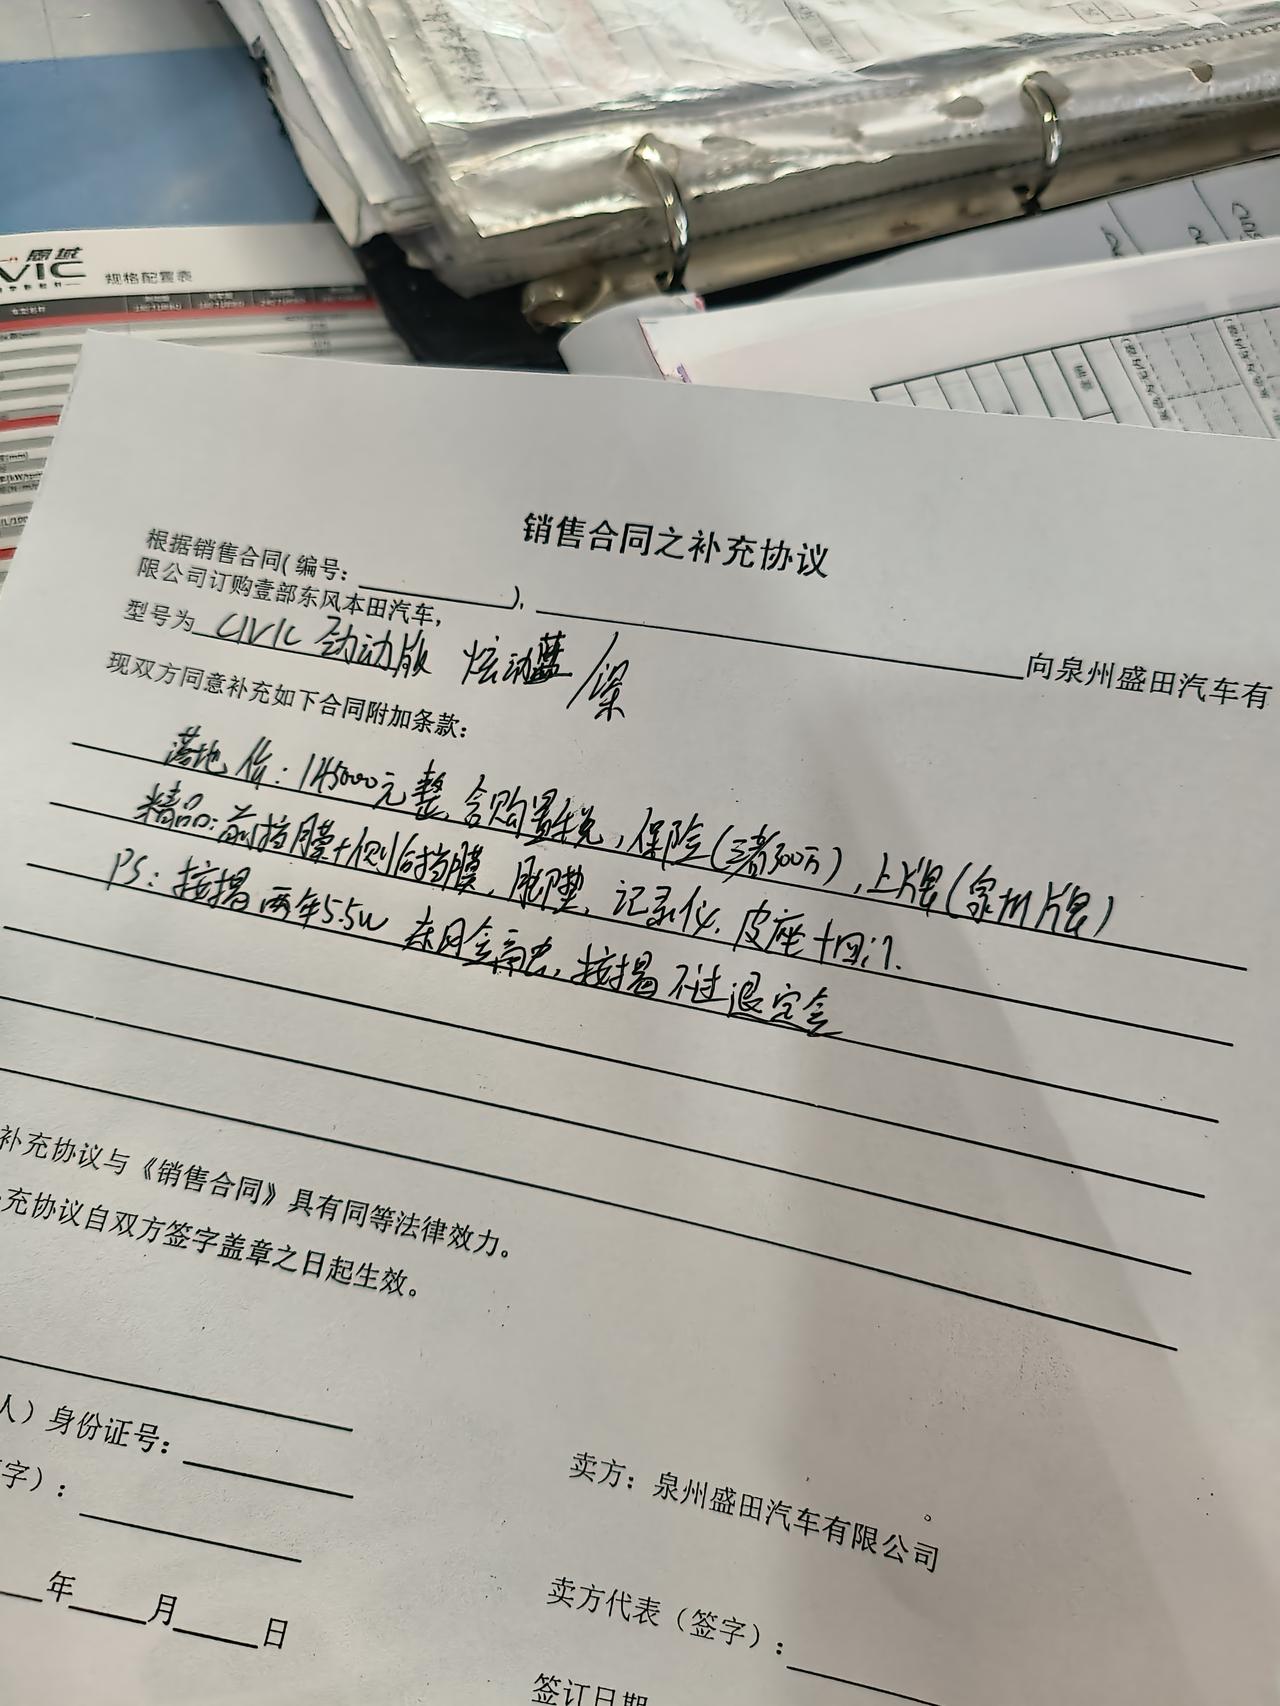 VIC
规格配置表
销售合同之补充协议
根据销售合同(编号: ),
向泉州盛田汽车有
限公司订购壹部东风本田汽车,
型号为 CIVIC 劲动版 炫动蓝/
现双方同意补充如下合同附加条款:
落地价: 145000元整,含购置税,保险(三者300万),上牌(泉州牌)
精品:前挡膜+侧后挡膜,脚垫,记录仪,皮座+四门.
PS: 按揭两年5.5w 按揭不过退定金
补充协议与《销售合同》具有同等法律效力。
充协议自双方签字盖章之日起生效。
人)身份证号:
字):
年 月 日
卖方: 泉州盛田汽车有限公司
卖方代表(签字):
签订日期